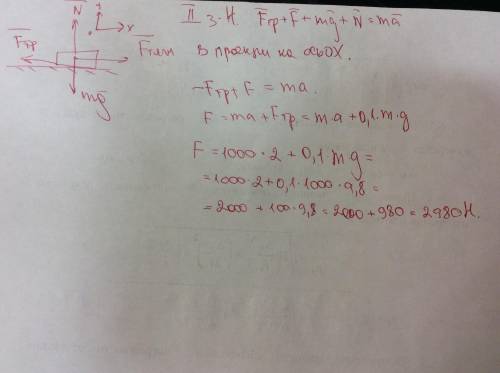 N̅
y
x
F̅тр
F̅тяги
mg̅
II з.Н. F̅тр + F̅ + mg̅ + N̅ = ma̅
В проекции на ось OX.
-Fтр + F = ma.
F = ma + Fтр = m·a + 0,1·m·g
F = 1000·2 + 0,1·mg =
= 1000·2 + 0,1·1000·9,8 =
= 2000 + 100·9,8 = 2000 + 980 = 2980 Н.